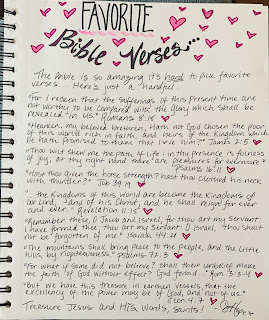 FAVORITE
Bible Verses...
The Bible is so amazing it's hard to pick favorite
verses... Here's just "a handful".
"For I reckon that the sufferings of this present time are
not worthy to be compared with the glory which shall be
revealed in us." Romans 8:18
"Hearken, my beloved brethren, Hath not God chosen the poor
of this world rich in faith, and heirs of the Kingdom which
he hath promised to them that love him?" James 2:5
"Thou wilt shew me the path of life: in thy presence is fulness
of joy; at thy right hand there are pleasures for evermore."
Psalms 16:11
"Hast thou given the horse strength? hast thou clothed his neck
with thunder?" Job 39:19
"...the Kingdoms of this world are become the Kingdoms of
our Lord, and of his Christ; and he shall reign for ever
and ever." Revelation 11:15
"Remember these, O Jacob and Israel; for thou art my servant:
I have formed thee; thou art my servant: O Israel, thou shalt
not be forgotten of me." Isaiah 44:21
"The mountains shall bring peace to the people, and the little
hills, by righteousness." Psalms 72:3
"For what if some did not believe? shall their unbelief make
the faith of God without effect? God forbid..." Rom. 3:3-4
"But we have this treasure in earthen vessels, that the
excellency of the power may be of God, and not of us."
II Cor. 4:7
Treasure Jesus and His Words, Saints!